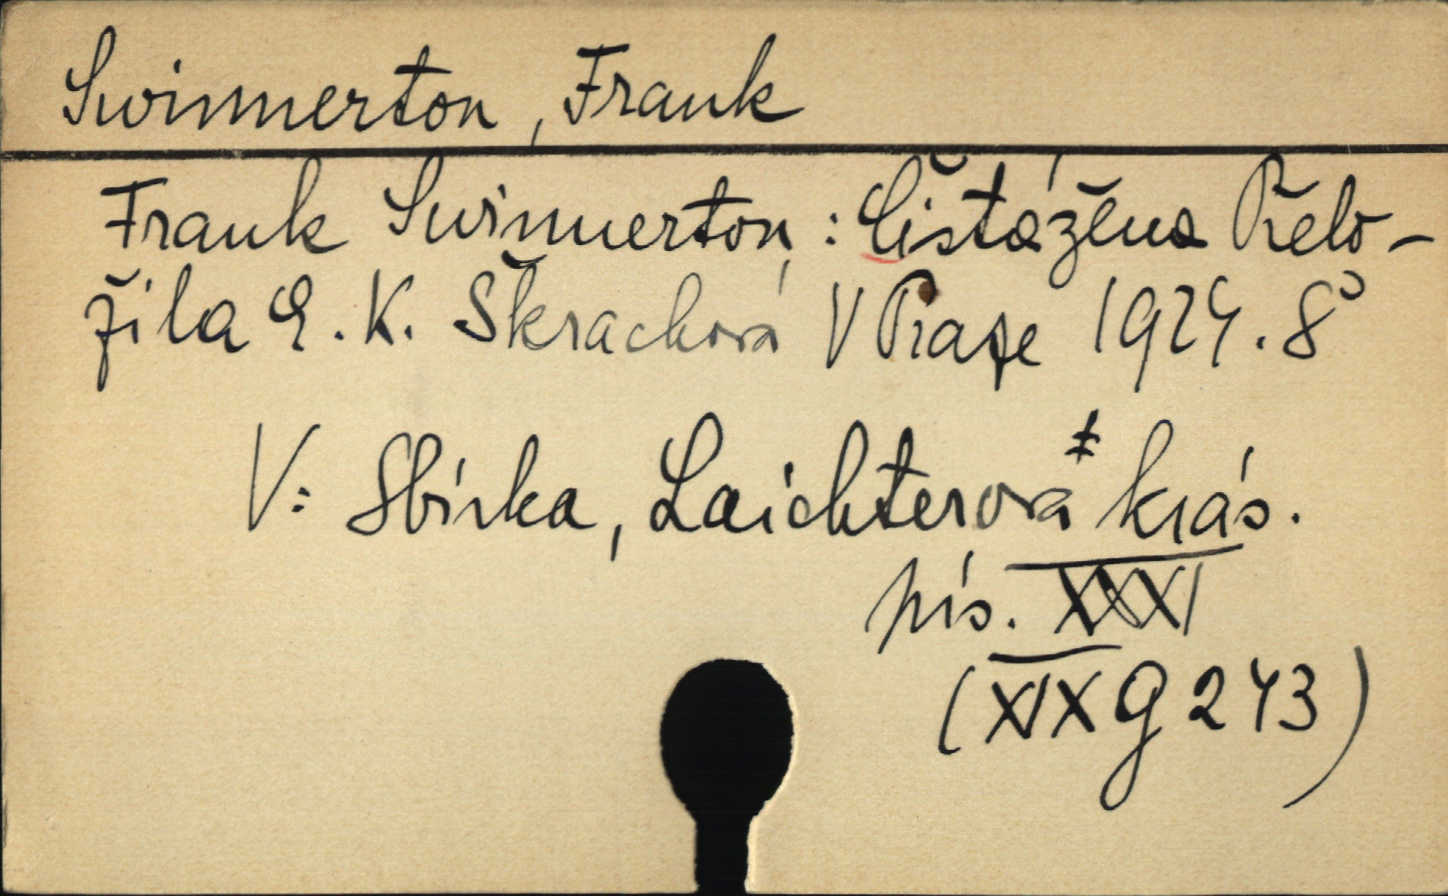 Swinnerton, Frank
Frank Swinnerton: Čistá žena Přelo-
žila E. K. Škrachová V Praze 1924. 8°
V: Sbírka, Laichterova krás.
pís. XXXI
(XIX G 243)